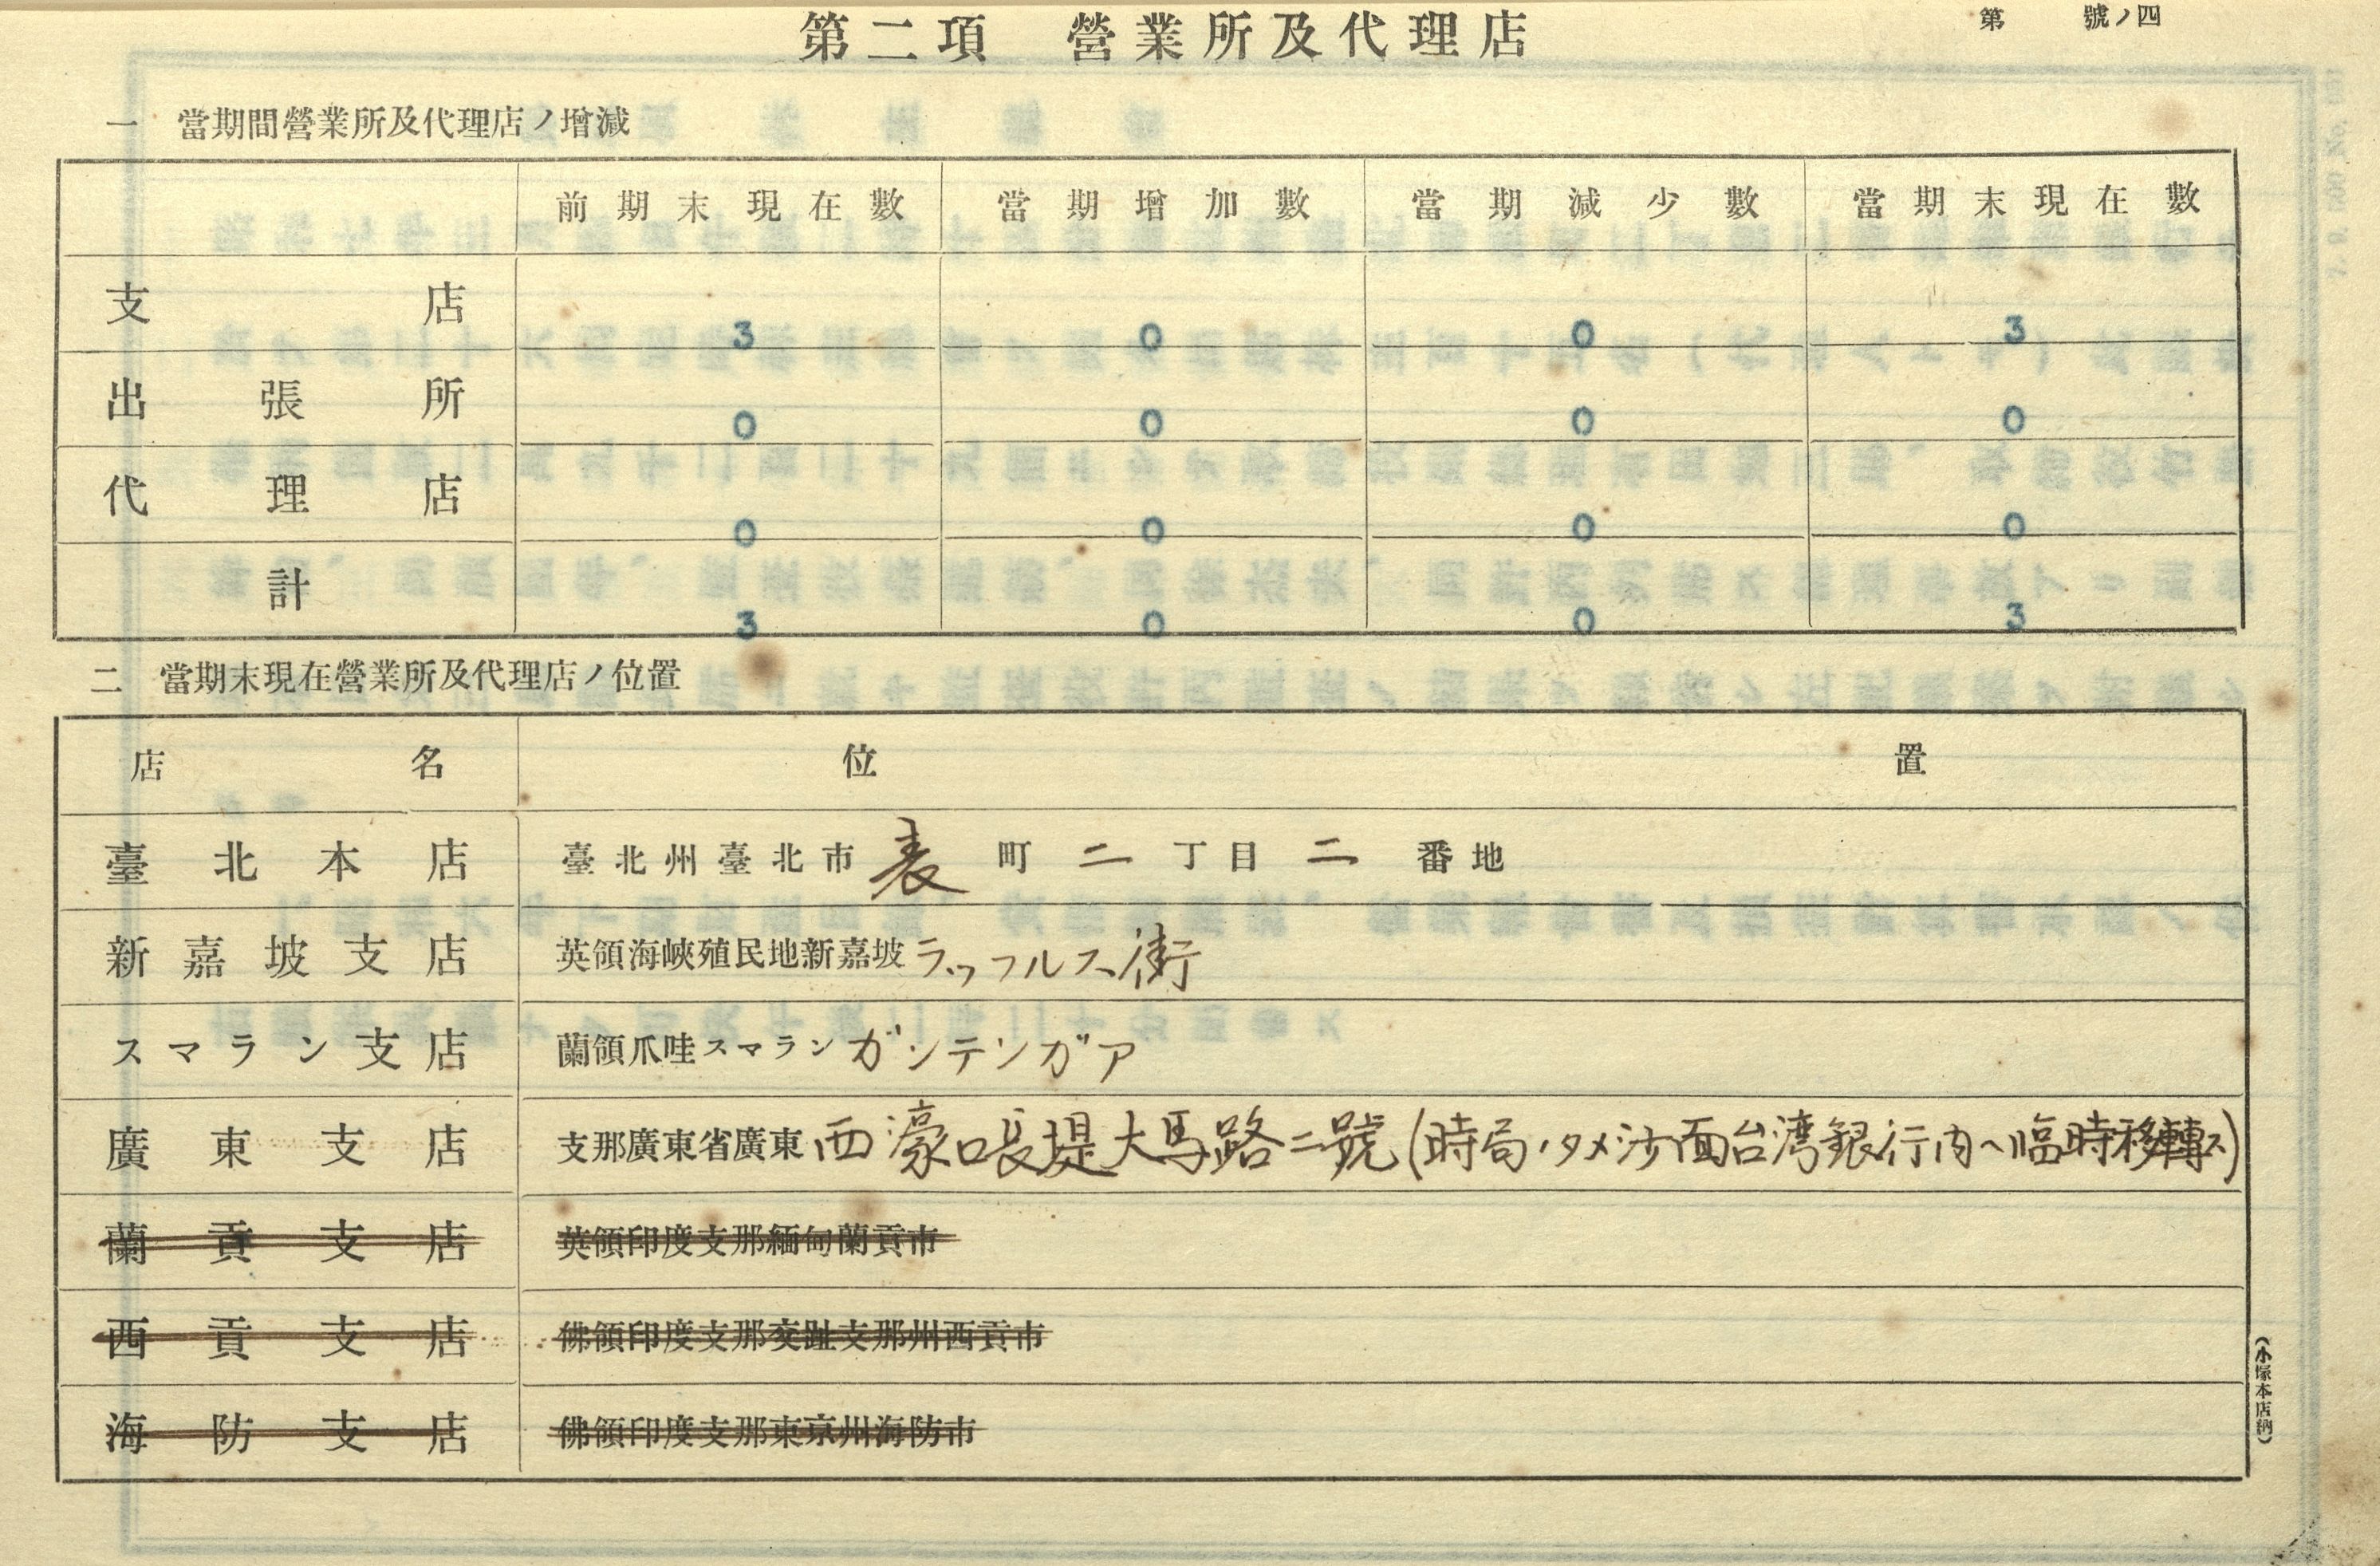 第　號ノ四
第二項　營業所及代理店
一　當期間營業所及代理店ノ增減
前期末現在數　當期增加數　當期減少數　當期末現在數
支店　3　0　0　3
出張所　0　0　0　0
代理店　0　0　0　0
計　3　0　0　3
二　當期末現在營業所及代理店ノ位置
店名　位置
臺北本店　臺北州臺北市表町二丁目二番地
新嘉坡支店　英領海峽殖民地新嘉坡ラッフルス街
スマラン支店　蘭領爪哇スマランガンテンガア
廣東支店　支那廣東省廣東西濠口長堤大馬路二號(時局ノタメ沙面台湾銀行内ヘ臨時移轉ス)
蘭貢支店　英領印度支那緬甸蘭貢市
西貢支店　佛領印度支那交趾支那州西貢市
海防支店　佛領印度支那東京州海防市
(小塚本店納)